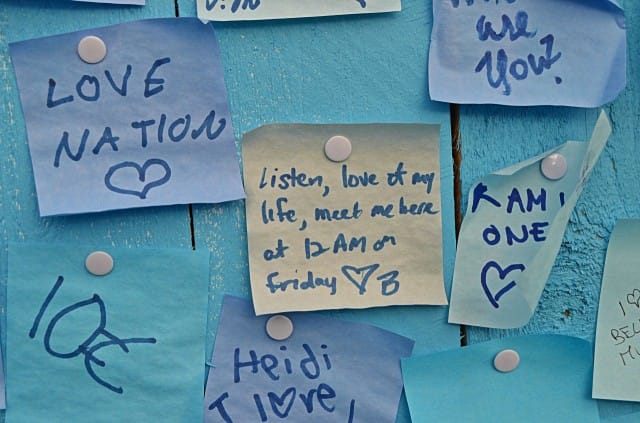 are
you?
LOVE
NATION
Listen, love of my
life, meet me here
at 12 AM on
Friday ♡ B
RAMI
ONE
Heidi
I love
I ♡
BEL
MU